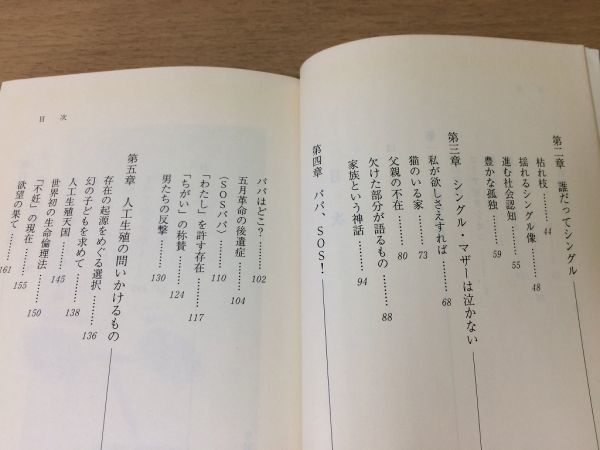 第二章 誰だってシングル
枯れ枝………44
揺れるシングル像………48
進む社会認知………55
豊かな孤独………59
第三章 シングル・マザーは泣かない
私が欲しさえすれば………68
猫のいる家………73
父親の不在………80
欠けた部分が語るもの………88
家族という神話………94
第四章 パパ、SOS！
パパはどこ？………102
五月革命の後遺症………104
（SOSパパ）………110
「わたし」を許す存在………117
「ちがい」の称賛………124
男たちの反撃………130
第五章 人工生殖の問いかけるもの
存在の起源をめぐる選択………136
幻の子どもを求めて………138
人工生殖天国………145
世界初の生命倫理法………150
「不妊」の現在………155
欲望の果て………161
目次